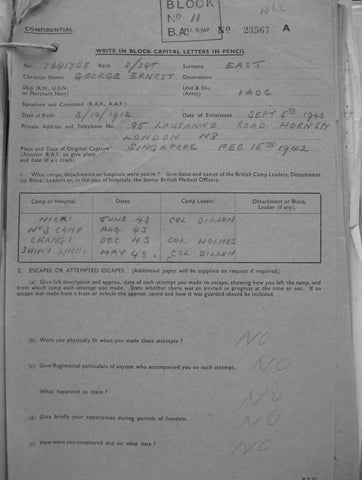 BLOCK
Nº 11
NIL
CONFIDENTIAL
Nº 23567 A
WRITE IN BLOCK CAPITAL LETTERS IN PENCIL
No. 7641708 Rank S/SGT Surname EAST
Christian Names GEORGE ERNEST Decorations
Ship (R.N., U.S.N. or Merchant Navy) Unit & Div. (Army) IAOC
Squadron and Command (R.A.F., A.A.F.)
Date of Birth 3/10/1912 Date of Enlistment SEPT 5TH 1940
Private Address and Telephone No. 95 LAUSANNE ROAD HORNSEY
LONDON N8
Place and Date of Original Capture SINGAPORE FEB 15TH 1942
(Aircrew R.A.F. to give place and date of a/c crash).
1. What camps, detachments or hospitals were you in? Give dates and names of the British Camp Leaders, Detachments (or Block) Leaders or, in the case of hospitals, the Senior British Medical Officers.
Camp or Hospital. Dates. Camp Leader. Detachment or Block Leader (if any).
NICKI JUNE 43 COL DILLON
Nº3 CAMP AUG 43
CHANGI DEC 43 COL HOLMES
SHIMO NICKI MAY 43. COL DILLON
2. ESCAPES OR ATTEMPTED ESCAPES. (Additional paper will be supplied on request if required).
(a) Give full description and approx. date of each attempt you made to escape, showing how you left the camp, and
from which camp each attempt was made. State whether there was an air-raid in progress at the time or not. If an
escape was made from a train or vehicle the approx. speed and how it was guarded should be included.
(b) Were you physically fit when you made these attempts? NO
(c) Give Regimental particulars of anyone who accompanied you on each attempt. NO
What happened to them? NO
(d) Give briefly your experiences during periods of freedom. NO
(e) How were you recaptured and on what date? NO